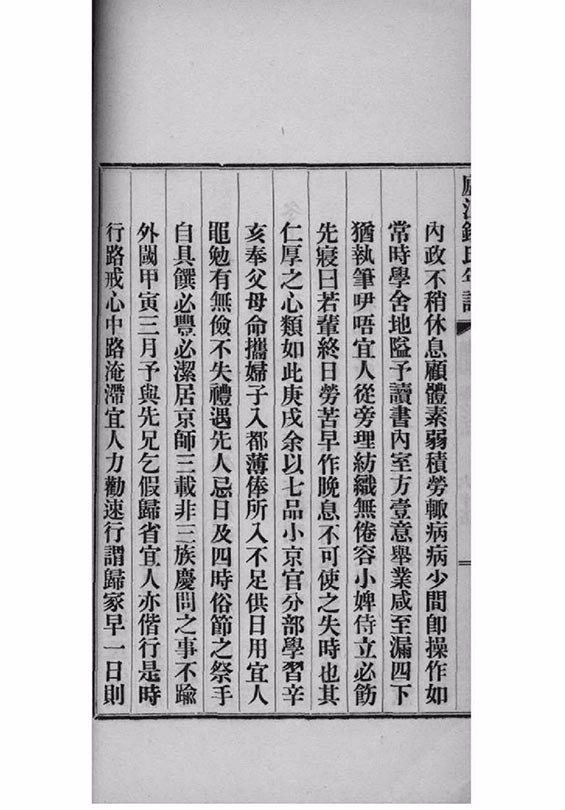 廬江錢氏年譜
內政不稍休息顧體素弱積勞輙病病少間卽操作如
常時學舍地隘予讀書內室方壹意舉業咸至漏四下
猶執筆咿唔宜人從旁理紡織無倦容小婢侍立必飭
先寢曰若輩終日勞苦早作晚息不可使之失時也其
仁厚之心類如此庚戌余以七品小京官分部學習辛
亥奉父母命攜婦子入都薄俸所入不足供日用宜人
黽勉有無儉不失禮遇先人忌日及四時俗節之祭手
自具饌必豐必潔居京師三載非三族慶問之事不踰
外閾甲寅三月予與先兄乞假歸省宜人亦偕行是時
行路戒心中路淹滯宜人力勸速行謂歸家早一日則